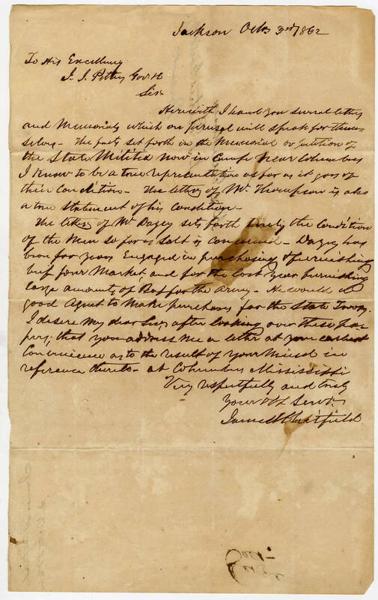 Jackson Octo 3rd 1862
To His Excellency
J. J. Pettus Gov
Sir
Herewith I hand you several letters
and Memorials which on perusal will speak for them
selves - The facts set forth in the Memorial or petition of
the State Militia now in Camp Near Columbus
I know to be a true representation as far as it goes of
their Condition - The letter of Mr Thompson is also
a true statement of his Condition -
The letter of Mr Dazey sets forth truly the Condition
of the Men so far as Salt is concerned - Dazey has
been for years Engaged in purchasing & furnishing
beef four Market and for the last year furnishing
large amounts of Beef for the Army - He would be
good Agent to Make purchases for the State Troops
I desire my dear Sir, after looking over these pa
pers, that you address me a letter at your earliest
Convenience as to the result of your Mind in
reference thereto - at Columbus Mississippi
Very respectfully and truly
Your Obt Servt
James H Hatfield